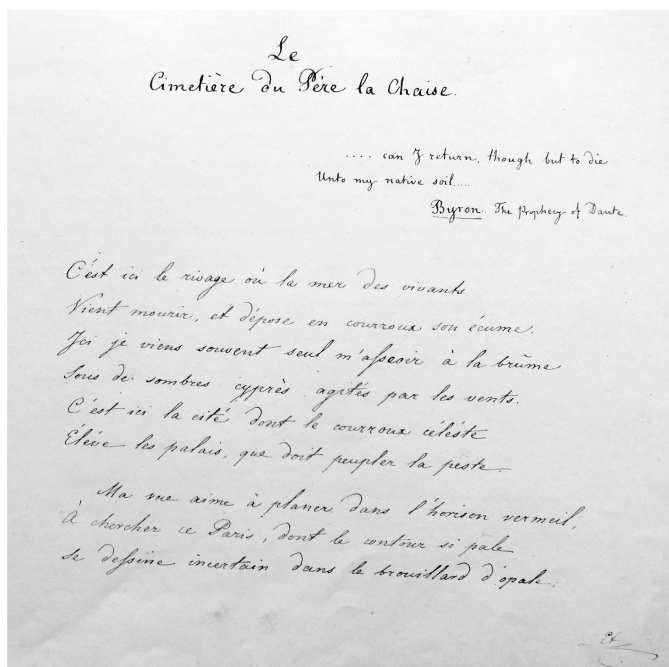 Le
Cimetière du Père la Chaise.
.... can I return, though but to die
Unto my native soil.....
Byron. The Prophecy of Dante.
C'ést ici le rivage où la mer des vivants
Vient mourir, et dépose en courroux son écume.
Ici je viens souvent seul m'asseoir à la brûme
Sous de sombres cyprès agités par les vents.
C'ést ici la cité dont le courroux céléste
Élève les palais, que doit peupler la peste.
Ma vue aime à planer dans l'horison vermeil,
À chercher ce Paris, dont le contour si pale
Se dessine incertain dans le brouillard d'opale.